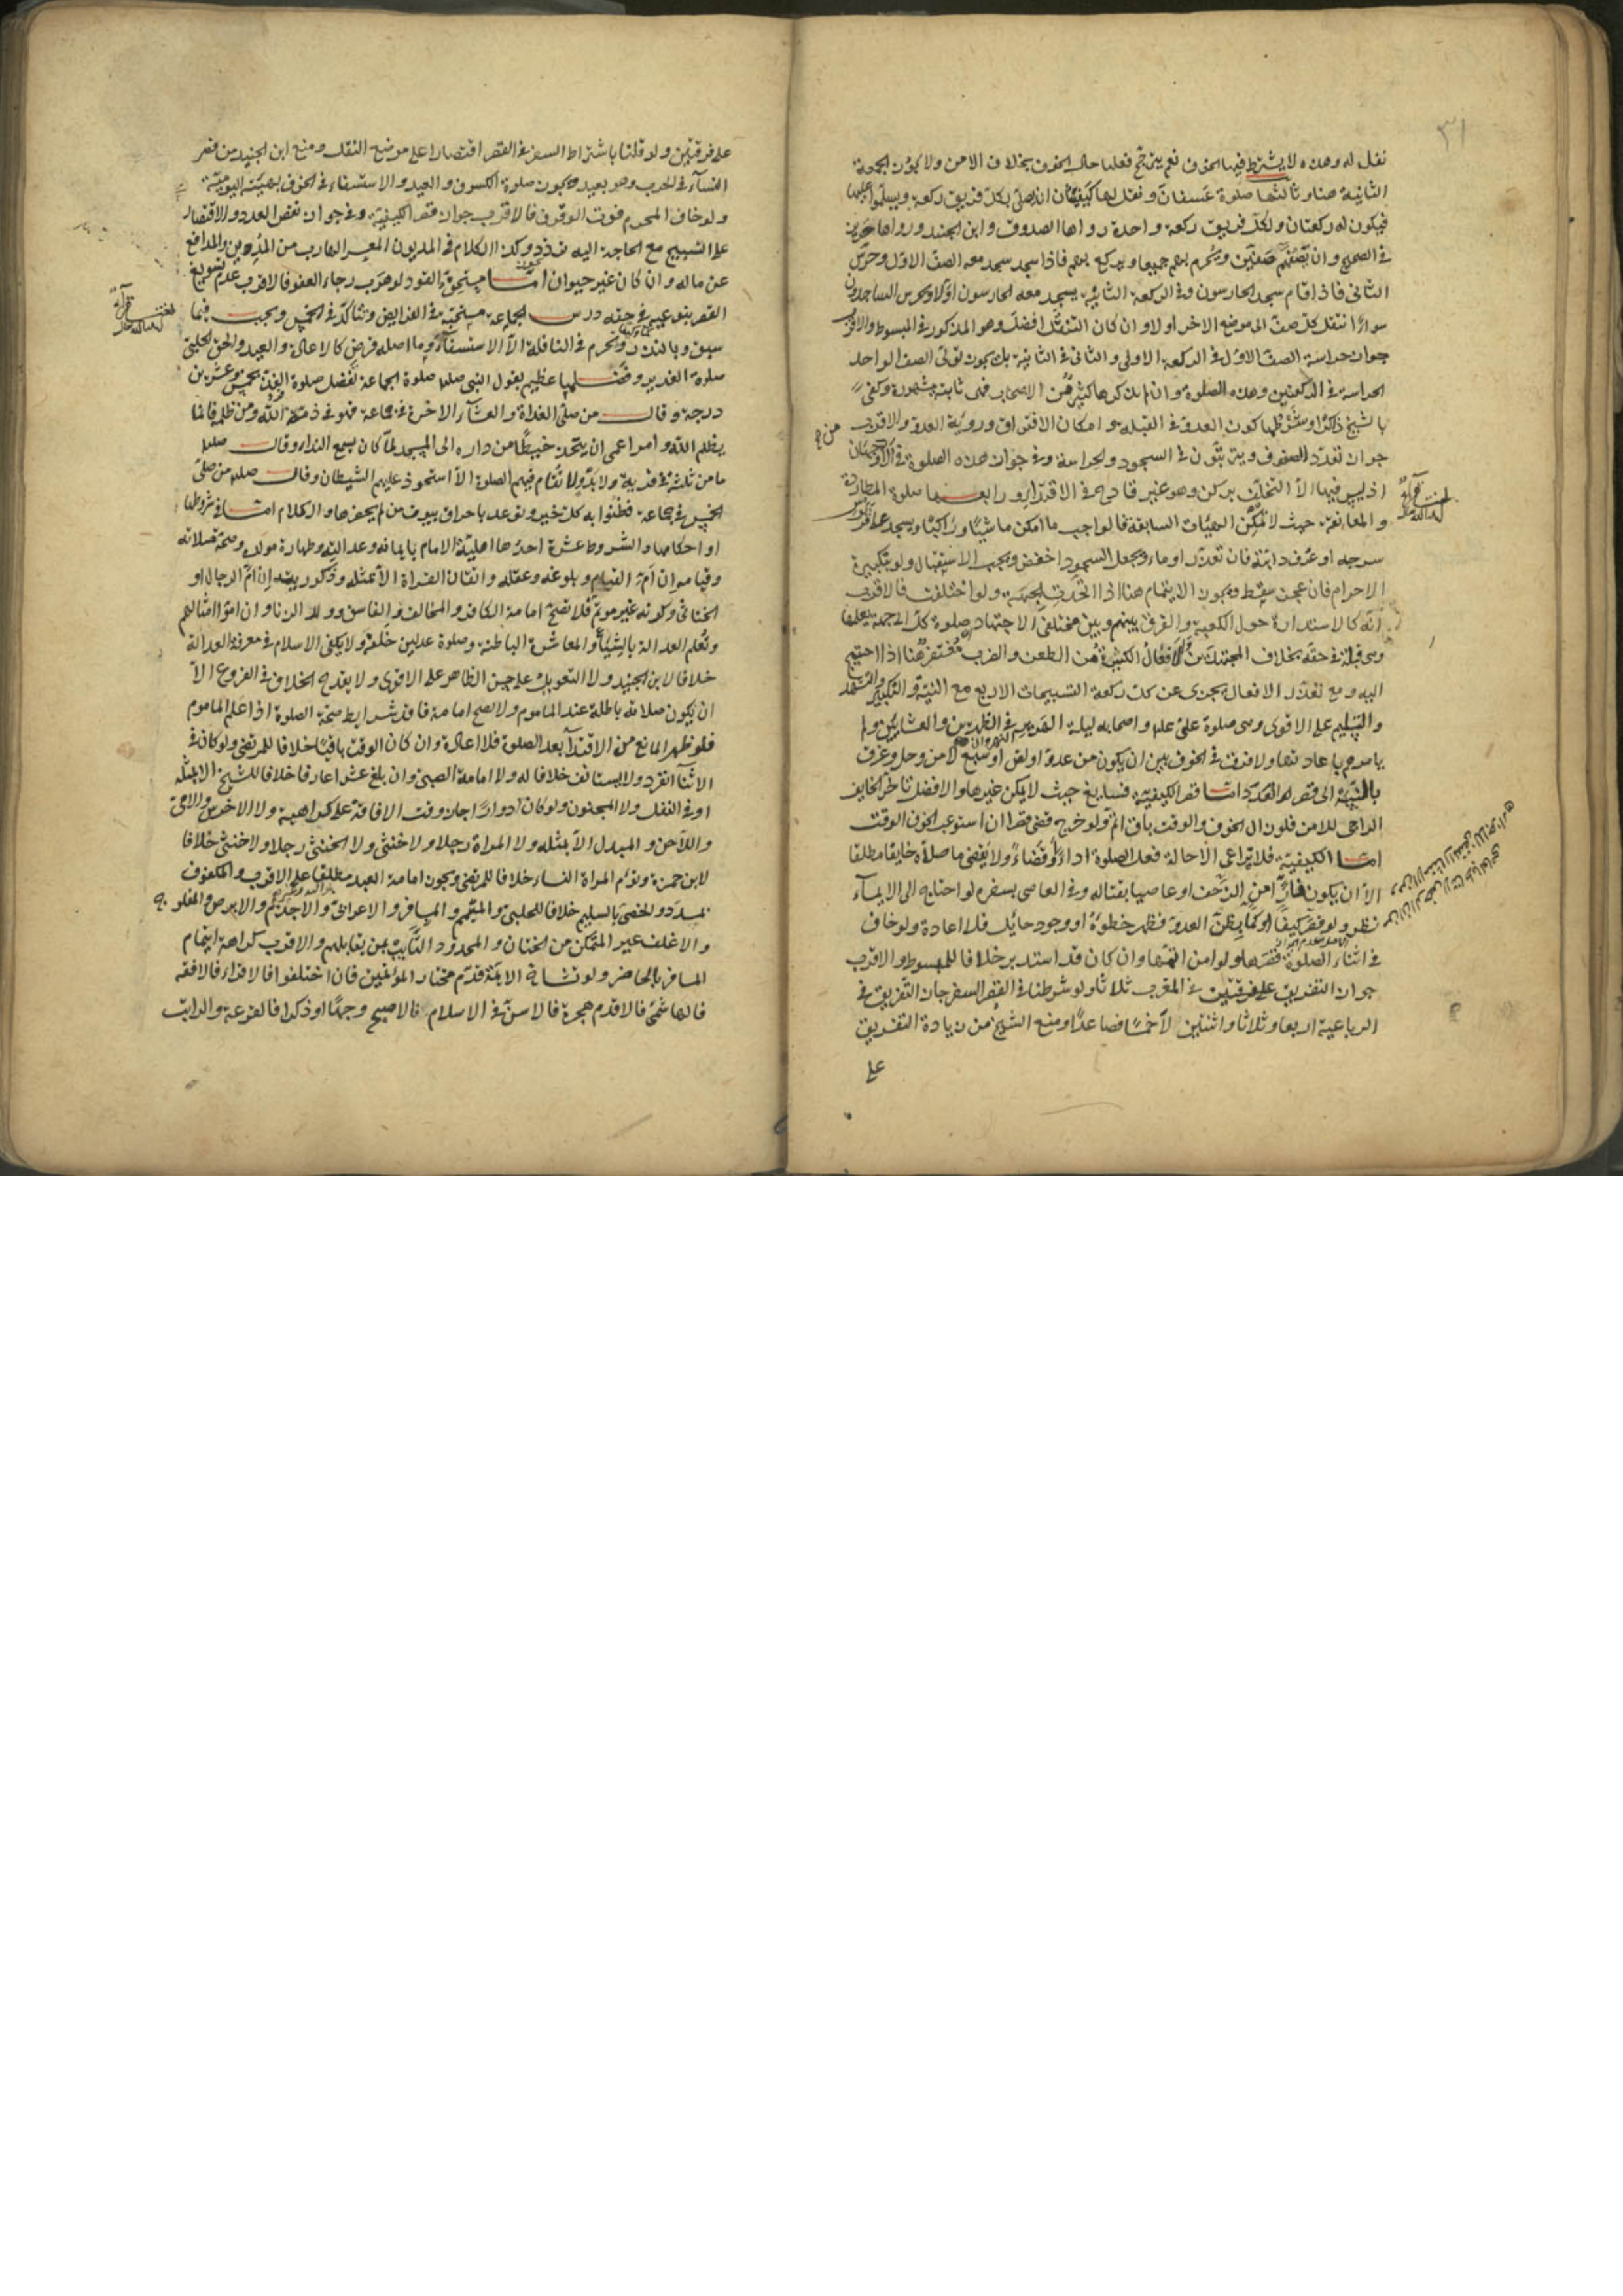 ٣١
نفل له وهذه لا يشترط فيها الخوف نعم يترجح فعلها حال الخوف بخلاف الامن ولا يكون الجمعة
الثانية هنا وثالثها صلوة عسفان ونقل لها كيفيتان ان يصلي بكل فريق ركعة ويسلموا عليها
فيكون له ركعتان ولكل فريق ركعة واحدة رواها الصدوق وابن الجنيد ورواها حريز
في الصحيح وان يصفهم صفين ويحرم بهم جميعا ويركع بهم فاذا سجد سجد معه الصف الاول وحرس
الثاني فاذا قام سجد الحارسون وفي الركعة الثانية يسجد معه الحارسون اولا ويحرس الساجدون
سواء انتقل كل صف الى موضع الاخر او لا وان كان التنقل افضل وهو المذكور في المبسوط والاقرب
جواز حراسة الصف الاول في الركعة الاولى والثاني في الثانية بل يجوز تولي الصف الواحد
الحراسة في الركعتين وهذه الصلوة وان لم يذكرها كثير من الاصحاب فهي ثابتة مشهورة وكفى
بالشيخ ذاكرا وشرطها كون العدو في القبلة وامكان الافتراق ورؤية العدو والاقرب
جواز تعدد الصفوف ويترتبون في السجود والحراسة وفي جواز هذه الصلوة في
اذ ليس فيها الا التخلف بركن وهو غير قادح في الاقتداء ورابعها صلوة المطاردة
والمعانقة حيث لا تمكن الهيئات السابقة فالواجب ما امكن ماشيا وراكبا ويسجد على قربوس
سرجه او عرف دابته فان تعذر اوما ويجعل السجود اخفض ويجب الاستقبال ولو بتكبيرة
الاحرام فان عجز سقط ويجوز الايتمام هنا اذا اتحدت الجهة ولو اختلفت فالاقرب
انه كالاستدارة حول الكعبة والفرق بينهم وبين مختلفي الاجتهاد صلوة كل الى جهة يعلمها
وهي قبلة في حقه بخلاف المجتهدين والافعال الكثيرة من الطعن والضرب مغتفر هنا اذا احتيج
اليه ومع تعذر الافعال يجزى عن كل ركعة التسبيحات الاربع مع النية والتكبير والتشهد
والتسليم على الاقوى وهي صلوة علي علم واصحابه ليلة الهرير في الظهرين والعشائين ولم
يامرهم باعادتها ولا فرق في الخوف بين ان يكون من عدو او لص او سبع لا من وحل وغرق
بالنسبة الى قصر العدد اما قصر الكيفية فسايغ حيث لا يمكن غيرها والافضل تاخير الخايف
الراجي للامن فلو زال الخوف والوقت باق اتم ولو خرج قضى قصرا ان استوعب الخوف الوقت
اما الكيفية فلا يراعى الا حالة فعل الصلوة اداء وقضاء ولا يقضي ما صلاه خايفا مطلقا
الا ان يكون فارا من الزحف او عاصيا بقتاله وفي العاصي بسفره لو احتاج الى الايماء
نظر ولو قصر كيفا او كما بظن العدو فظهر خطؤه او وجود حايل فلا اعادة ولو خاف
في اثناء الصلوة قصرها ولو امن اتمها وان كان قد استدبر خلافا للمبسوط والاقرب
جواز التفريق على فرقتين في المغرب ثلاثا ولو شرطنا في القصر السفر جاز التفريق في
الرباعية اربعا وثلاثا واثنتين لا خمسا فصاعدا ومنع الشيخ من زيادة التفريق
على
على فرقتين ولو قلنا باشتراط السفر في القصر اقتصارا على موضع النقل ومنع ابن الجنيد من قصر
النساء في الحرب وهو بعيد ويكون صلوة الكسوف والعيد والاستسقاء في الخوف بهيئة اليومية
ولو خاف المحرم فوت الوقوف فالاقرب جواز قصر الكيفية وفي جواز نقص العدد والاقتصار
على التسبيح مع الحاجة اليه تردد وكذا الكلام في المديون المعسر الهارب من المدين والمدافع
عن ماله وان كان غير حيوان اما مستحق القود لو هرب رجاء العفو فالاقرب عدم تسويغ
القصر بنوعيه في حقه درس الجماعة مستحبة في الفرايض وتتاكد في الخمس وتجب فيما
سبق وبالنذر وتحرم في النافلة الا الاستسقاء وما اصله فرض كالاعادة والعيد والحق الحلبي
صلوة الغدير وفضلها عظيم لقول النبي صلم صلوة الجماعة تفضل صلوة الفذ بخمس وعشرين
درجة وقال من صلى الغداة والعشاء الاخرة في جماعة فهو في ذمة الله ومن ظلمه فانما
يظلم الله وامر اعمى ان يتخذ خيطا من داره الى المسجد لما كان يسمع النداء وقال صلم
ما من ثلثة في قرية ولا بدو لا تقام فيهم الصلوة الا استحوذ عليهم الشيطان وقال صلم من صلى
الخمس في جماعة فظنوا به كل خير وتوعد باحراق بيوت من لم يحضرها والكلام اما في شروطها
او احكامها والشروط عشرة احدها اهلية الامام بايمانه وعدالته وطهارة مولده وصحة صلاته
وقيامه ان ام القيام وبلوغه وعقله واتقان القراة الا مثله وذكوريته ان ام الرجال او
الخناثى وكونه غير موتم فلا تصح امامة الكافر والمخالف والفاسق وولد الزنا وان اموا امثالهم
وتعلم العدالة بالشياع والمعاشرة الباطنة وصلوة عدلين خلفه ولا يكفي الاسلام في معرفة العدالة
خلافا لابن الجنيد ولا التعويل على حسن الظاهر على الاقوى ولا يقدح الخلاف في الفروع الا
ان يكون صلاته باطلة عند الماموم ولا تصح امامة فاقد شرايط صحة الصلوة اذا علم الماموم
فلو ظهر المانع من الاقتداء بعد الصلوة فلا اعادة وان كان الوقت باقيا خلافا للمرتضى ولو كان في
الاثناء انفرد ولا يستانف خلافا له ولا امامة الصبي وان بلغ عشرا عارفا خلافا للشيخ الا بمثله
او في النفل ولا المجنون ولو كان ادوارا جاز وقت الافاقة على كراهية ولا الاخرس والامي
واللاحن والمبدل الا بمثله ولا المراة رجلا ولا خنثى ولا الخنثى رجلا ولا خنثى خلافا
لابن حمزة وتؤم المراة النساء خلافا للمرتضى ويجوز امامة العبد مطلقا على الاقرب والمكفوف
بمسدد والخصي بالسليم خلافا للحلبي والمتيمم والمسافر والاعرابي والاجذم والابرص والمفلوج
والاغلف غير المتمكن من الختان والمحدود التايب بمن يقابلهم والاقرب كراهة ايتمام
المسافر بالحاضر ولو تشاح الائمة قدم مختار المؤتمين فان اختلفوا فالاقراء فالافقه
فالهاشمي فالاقدم هجرة فالاسن في الاسلام فالاصبح وجها او ذكرا فالقرعة والراتب